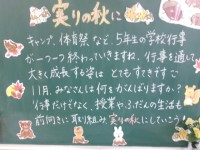 実りの秋に
キャンプ、体育祭など、5年生の学校行事
が一つ一つ終わっていきますね。行事を通して
大きく成長する姿は とてもすてきです♡
11月、みなさんは何をがんばりますか？
行事だけでなく、授業やふだんの生活も
前向きに取り組み、実りの秋にしていこう！